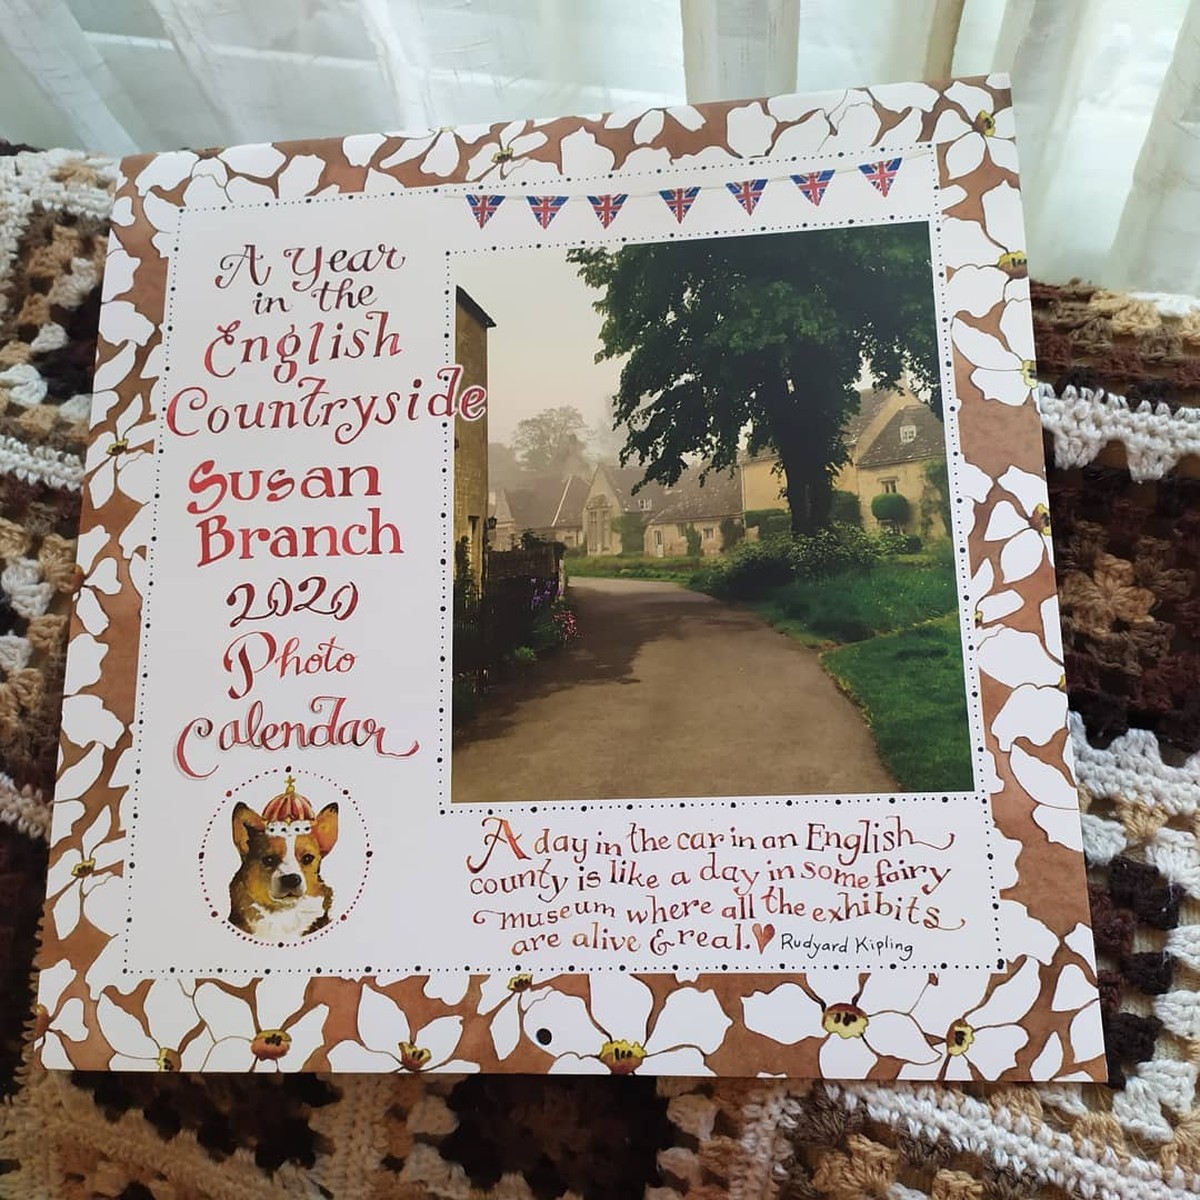 A Year
in the
English
Countryside
Susan
Branch
2020
Photo
Calendar
A day in the car in an English
county is like a day in some fairy
museum where all the exhibits
are alive & real.♥ Rudyard Kipling